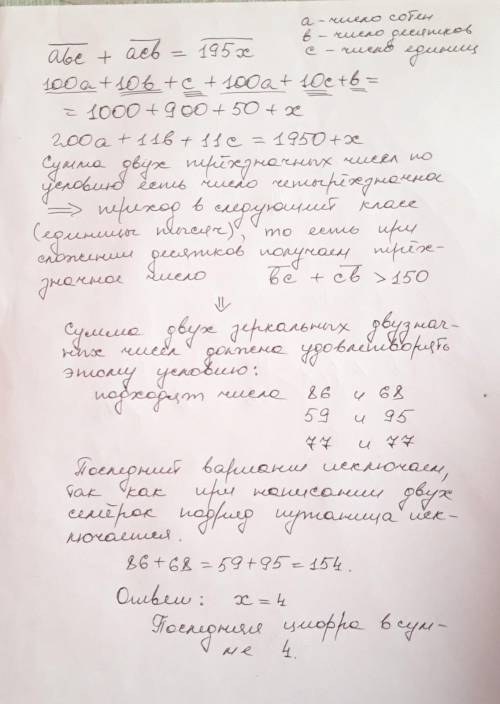 a – число сотен
в – число десятков
с – число единиц
abc + acb = 195x
100a + 10в + c + 100a + 10c + в =
= 1000 + 900 + 50 + x
200a + 11в + 11c = 1950 + x
Сумма двух трёхзначных чисел по
условию есть число четырёхзначное
⟹ переход в следующий класс
(единицы тысяч), то есть при
сложении десятков получаем трёх-
значное число вc + cв > 150
⇓
Сумма двух зеркальных двузнач-
ных чисел должна удовлетворять
этому условию:
подходят числа 86 и 68
59 и 95
77 и 77
Последний вариант исключаем,
так как при написании двух
семёрок подряд путаница иск-
лючается.
86 + 68 = 59 + 95 = 154.
Ответ: x = 4
Последняя цифра в сум-
ме 4.